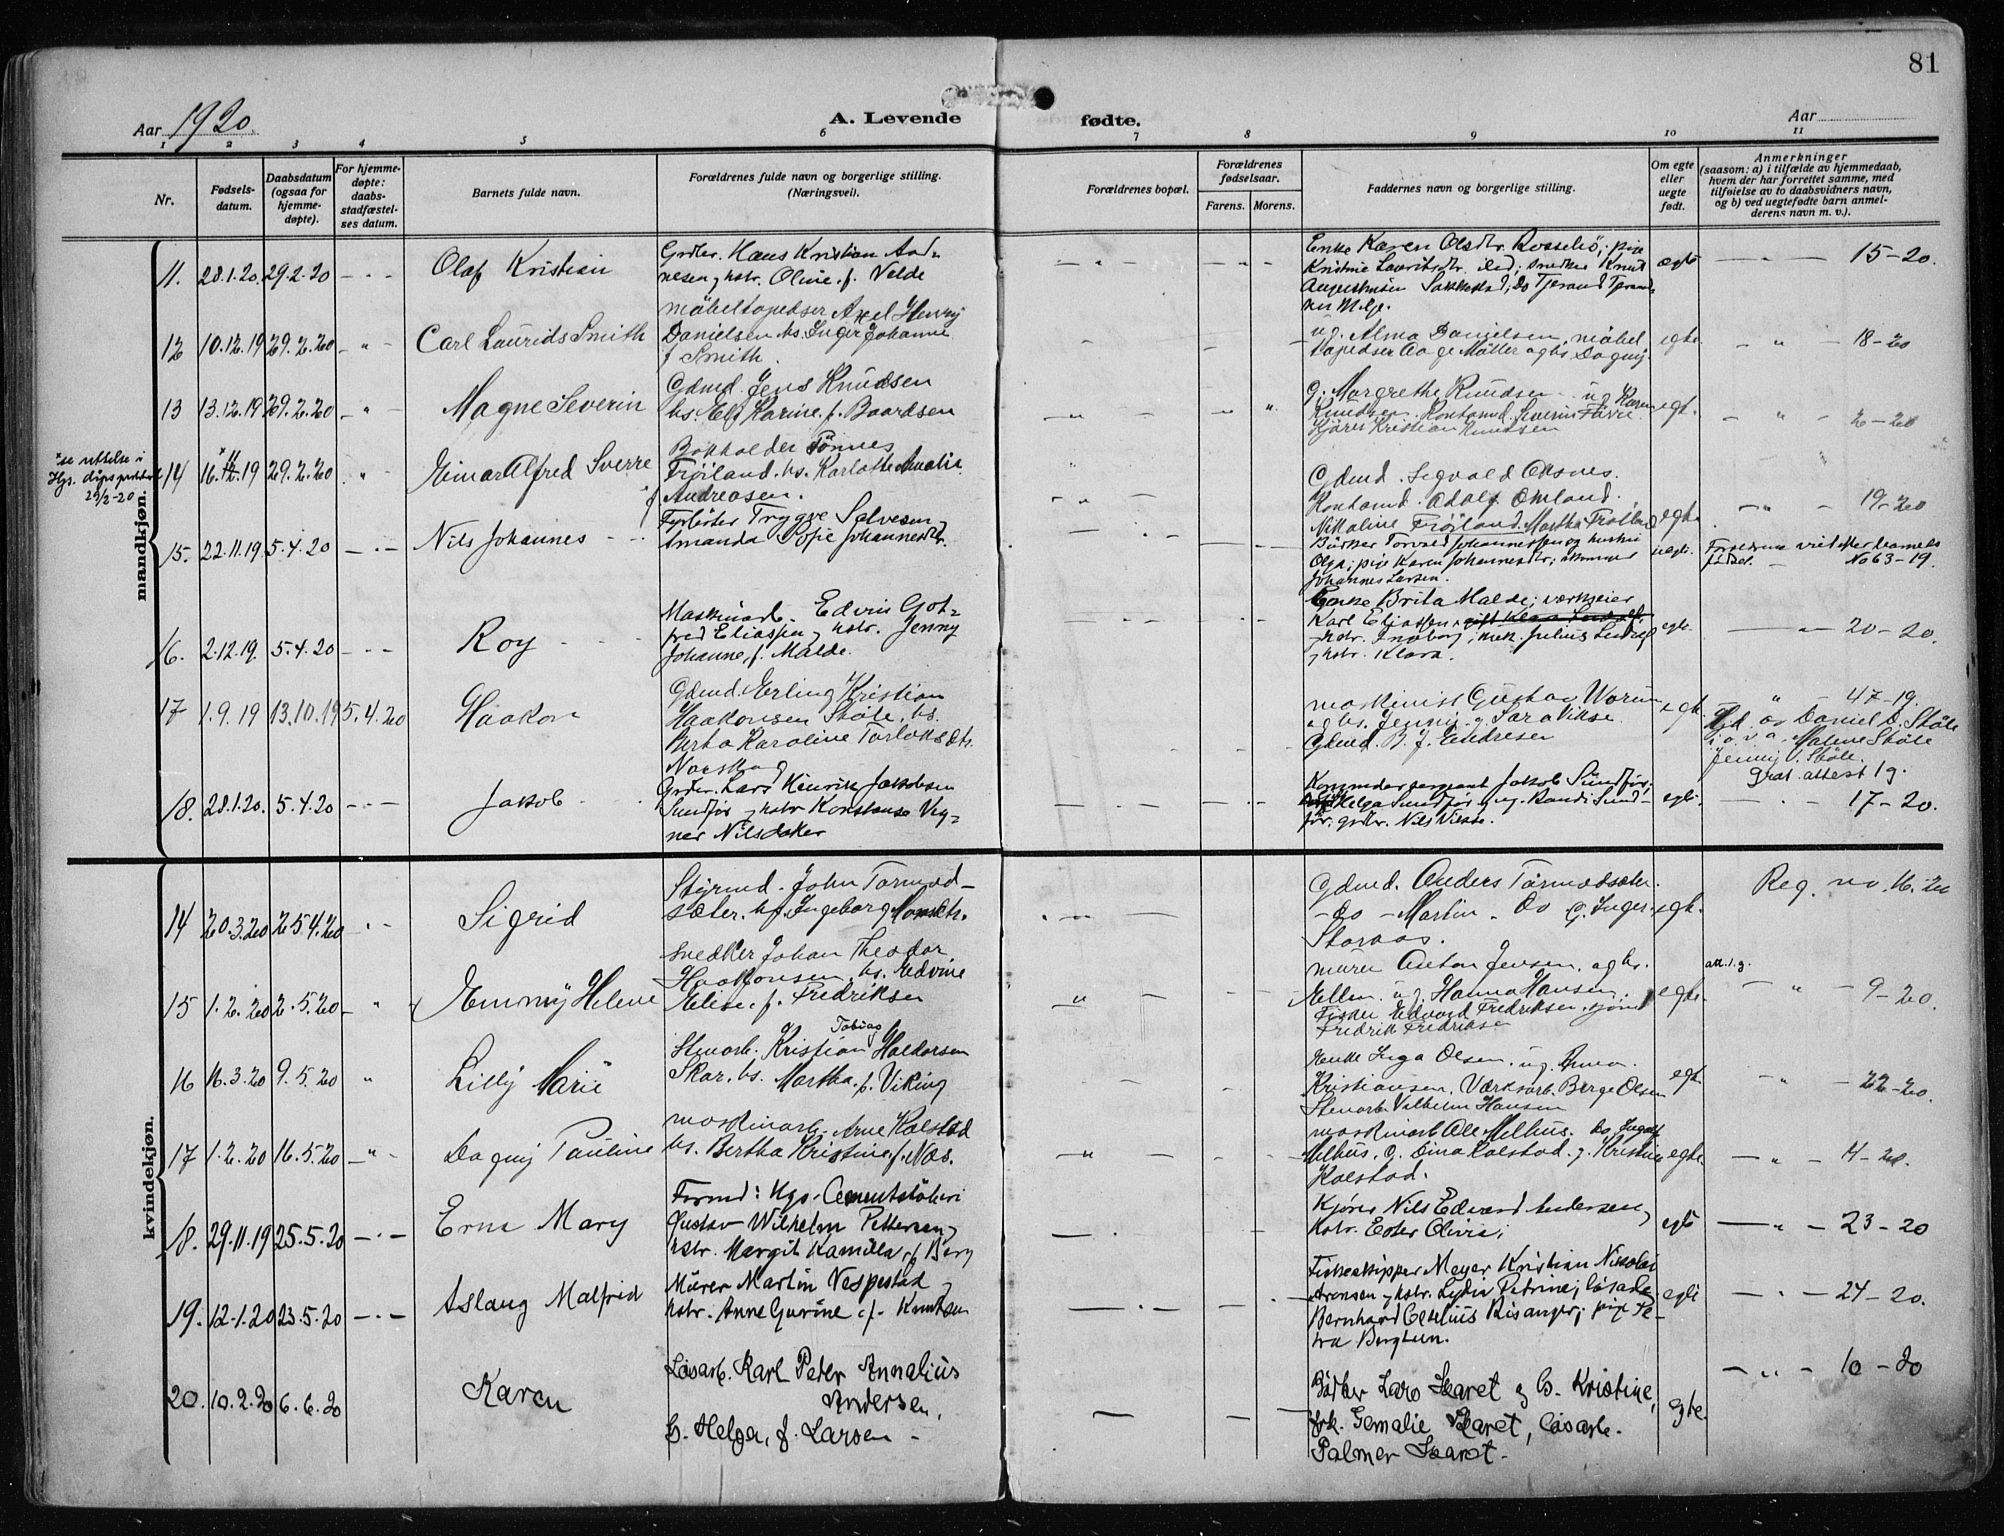 81
Aar 1920
A. Levende fødte.
Aar
1 2 3 4 5 6 7 8 9 10 11
Nr.
Fødsels-
datum.
Daabsdatum
(ogsaa for
hjemme-
døpte).
For hjemme-
døpte:
daabs-
stadfæstel-
ses datum.
Barnets fulde navn.
Forældrenes fulde navn og borgerlige stilling.
(Næringsvei).
Forældrenes bopæl.
Forældrenes
fødselsaar.
Farens. Morens.
Faddernes navn og borgerlige stilling.
Om egte
eller
uegte
født.
Anmerkninger
(saasom: a) i tilfælde av hjemmedaab,
hvem der har forrettet samme, med
tilføielse av to daabsvidners navn,
og b) ved uegtefødte barn anmel-
derens navn m. v.).
mandkjøn.
11. 28.1.20 29.2.20 — Olaf Kristian
Grdbr. Hans Kristian Aad-
nesen, hstr. Oline, f. Velde
Enke Karen Olsdtr. Rossebø; pige
Kristine Lauritsdtr. ibid; snedker Knut
Augustinsen Sakkestad; Do Tjerand Tjerand-
sen Melje.
egte — 15-20.
12 10.12.19 29.2.20 — Carl Laurids Smith
møbeltapedser Axel Henry
Danielsen hs. Inger Johanne
f Smith.
ug. Alma Danielsen, møbel
tapedser Aage Møller og hs. Dagny
egte 18-20
13 13.12.19 29.2.20 — Magne Severin
Gdmd. Jens Knudsen
hs. Elf Karine, f. Baardsen
g. Margrethe Knudsen. ug Karen
Knudsen. Kontormd. Severin Førre
Kjører Kristian Knudsen
egt. 2-20
"se rettelse i
Hgs. dåpsprotokol
29/2-20
14 16.12.19 29.2.20 Einar Alfred Sverre
Bokholder Tønnes
Frøiland. hs. Karlotte Amalie
f Andreasen.
Gdmd. Sigvald Oksnes.
Kontormd. Adolf Omland.
Nikkoline Frøiland. Martha Frøiland
egte 19-20
15. 22.11.19 5.4.20 — Nils Johannes
Fyrbøter Trygve Salvesen
Amanda Sofie Johannesdtr.
Bødker Torvald Johannessen og hustru
Olga; pige Karen Johannesdtr;
Johannes Larsen.
uegte. Forældrene viet etter barnets
fødsel. No 63-19.
16. 2.12.19. 5.4.20 — Roy
Maskinarb. Edvin Got-
fred Eliassen, hstr. Jenny
Johanne, f. Malde.
Enke Brita Malde; værkseier
Karl Eliassen,
, hstr. Ingeborg; mek. Julius
, hstr. Klara.
egte. 20-20.
17 1.9.19 13.10.19 5.4.20 Haakon
Gdmd. Erling Kristian
Haakonsen Støle. hs.
Berta Karoline Torloksdtr.
Norskog
maskinist Gustav Worum
og hs. Jenny. g. Sara Vikse.
Gdmd. B. J. Endresen
egte. " 47-19.
Hjd. av Daniel D. Støle
i o. v. a. Malene Støle
Jenny V. Støle.
Grat. attest 1 g.
18. 28.1.20. 5.4.20 — Jakob
Grdbr. Lars Henrik Jakobsen
Sundfør, hstr Konstanse Veg-
ner Nilsdaker
Kommandersergeant Jakob Sundfør;
Helga Sundfør, ug. Randi Sund-
før; grdbr. Nils Vikse.
egte. 17-20.
kvindekjøn.
14 20.3.20 25.4.20 Sigrid
Styrmd. John Tormod-
sæter. hs Ingeborg Monsdtr.
Gdmd. Anders Tormodsæter.
— do — Martin. Do g. Inger
Storaas.
egte. Reg. no. 16.-20
15 1.2.20 2.5.20 Emmy Helene
snedker Johan Theodor
Haakonsen, hs. Edvine
Elise, f. Fredriksen
murer Anton Jensen. og hs.
Ellen. ug. Hanna Hansen.
Fisker Edvard Fredriksen, sjømd
Fredrik Fredriksen
egte. att. 1. g. 9-20.
16 16.3.20 9.5.20 Lilly Marie
Stenarb. Kristian Tobias Haldorsen
Skar. hs. Martha. f. Viking
enke Inga Olsen. ug. Anna
Kristiansen. Værksarb. Berge Olsen
Stenarb Vilhelm Hansen
egte. 22-20.
17 1.2.20 16.5.20 Dagny Pauline
maskinarb. Arne Kolstad
hs. Bertha Kristine f. Næs.
maskinarb Ole Melhus. hs Ingeb.
Melhus. g. Dina Kolstad. g. Kristine
Kolstad.
egte. 4-20.
18. 29.11.19 25.5.20 — Erna Mary
Formd: Hgs. Cementstøberi
Gustav Wilhelm Pettersen,
hstr. Margit Kamilla f Berg
Kjører Nils Edvard Andersen,
hstr. Ester Olivia;
egte 23-20
19. 12.1.20 23.5.20 — Aslaug Malfrid
Mürer Martin Vespestad
hstr. Anne Gurine f. Knutsen
Fiskeskipper Meyer Kristian Nikolai
Arensen, hstr. Lydia Petrine; løsarb.
Bernhard Cecilius Risanger; pige Pe-
tra Berghem.
egte 24-20.
20. 10.2.20 6.6.20 Karen
Løsarb. Karl Peder Annelius
Andersen.
h. Helga, f. Larsen -
Bødker Lars Skaret og h. Kristine,
frk. Gemalie Skaret, løsarb.
Palmer Skaret.
egte. — " — 10-20